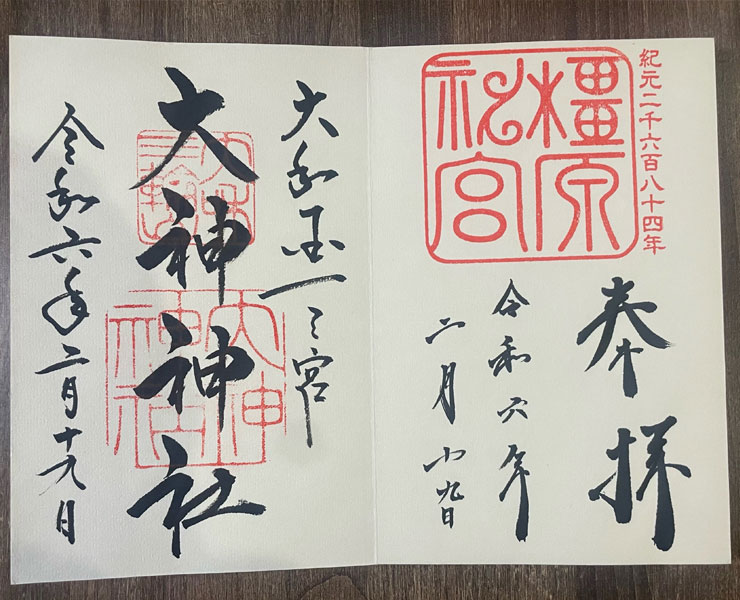 紀元二千六百八十四年
橿原
神宮
奉拝
令和六年
二月十九日
大和国一之宮
大神神社
大神
神社
令和六年二月十九日